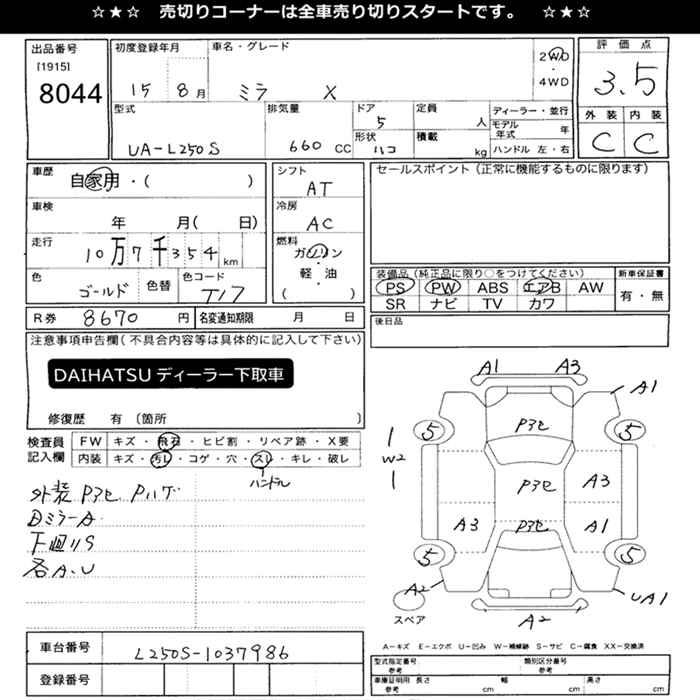 ☆★☆ 売切りコーナーは全車売り切りスタートです。 ☆★☆
出品番号
[1915]
8044
初度登録年月
15 8月
車名・グレード
ミラ X
2WD
・
4WD
評価点
3.5
外装 内装
C C
型式
UA-L250S
排気量
660 CC
ドア
5
形状
ハコ
定員
人
積載
kg
ディーラー・並行
モデル年式 年
ハンドル 左・右
車歴
自家用・( )
車検
年 月( 日)
走行
10万7千354km
色
ゴールド
色替
色コード
T17
シフト
AT
冷房
AC
燃料
ガソリン
・
軽・油
( )
セールスポイント (正常に機能するものに限ります)
装備品 (純正品に限り○をつけてください)
PS PW ABS エアB AW
SR ナビ TV カワ
新車保証書
有・無
R券 8670円
名変通知期限 月 日
後日品
注意事項申告欄 (不具合内容等は具体的に記入して下さい)
DAIHATSU ディーラー下取車
修復歴 有 〔箇所 〕
検査員
記入欄
FW キズ・飛石・ヒビ割・リペア跡・X要
内装 キズ・汚レ・コゲ・穴・スレ・キレ・破レ
ハンドル
外装 Pヨセ Pハゲ
DミラーA
下廻リS
各A.U
A1 A3
A1
5 5
Pヨセ
W2
Pヨセ
A3
A3
Pヨセ
A1
5 5
A2
スペア
A2
UA1
A-キズ E-エクボ U-凹み W-補修跡 S-サビ C-腐食 XX-交換済
車台番号 L250S-1037986
登録番号
型式指定番号 参考
類別区分番号 参考
車庫証明用 参考 長さ cm 幅 cm 高さ cm